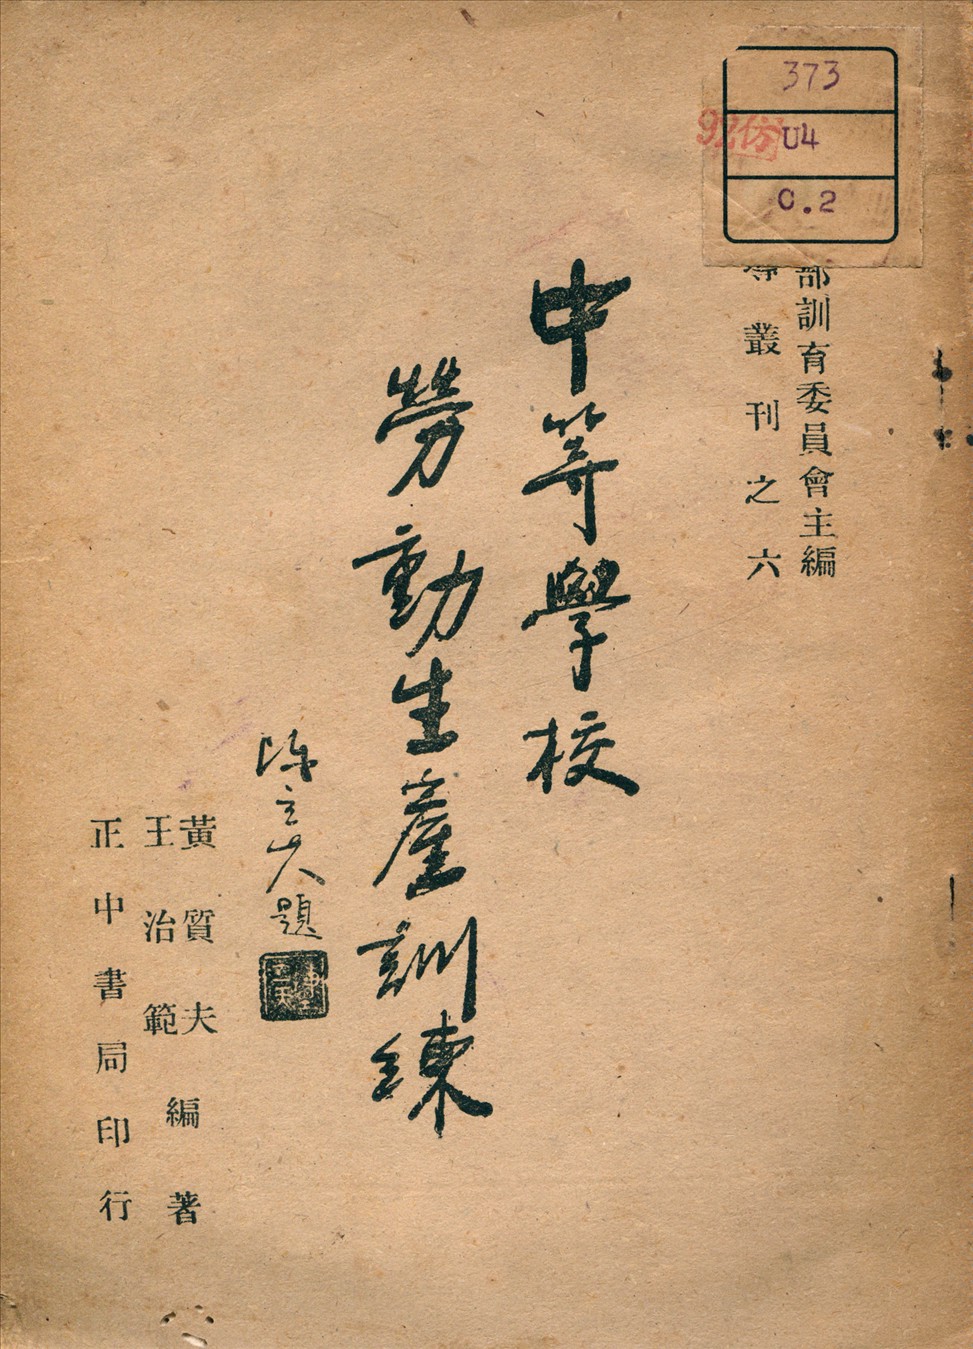 373
U4
C.2
92份
部訓育委員會主編
導叢刊之六
中等學校
勞動生產訓練
陳立夫題
黃質夫
王治範
編著
正中書局印行